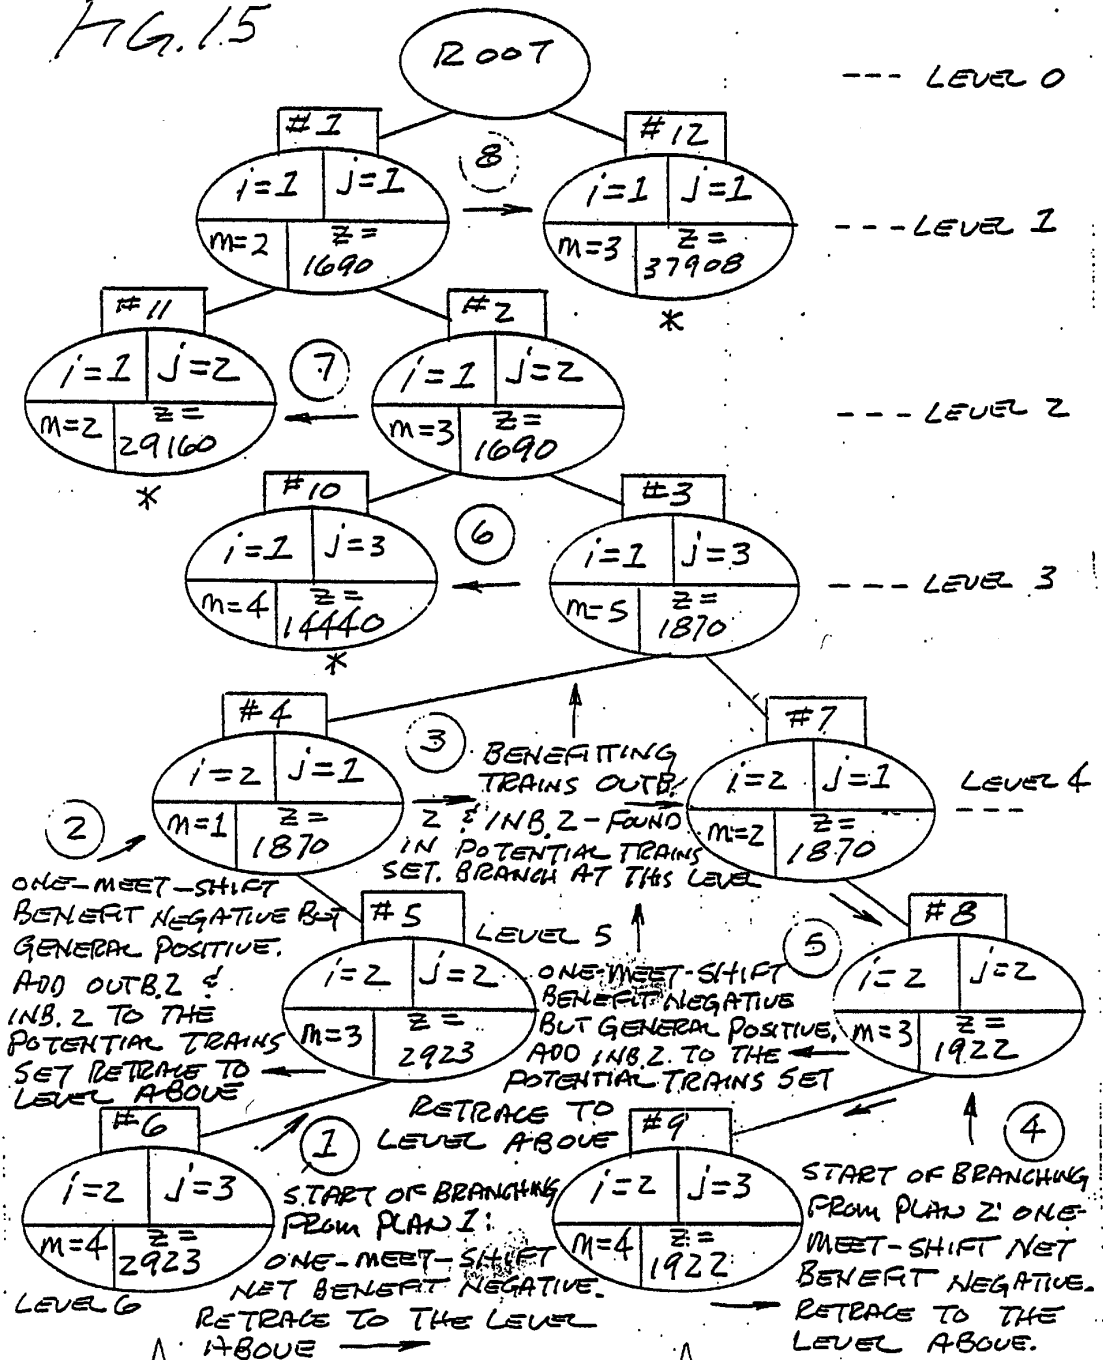 FIG.15
ROOT
--- LEVEL 0
#1
8
#12
i=1 j=1
i=1 j=1
m=2 z=
1690
m=3 z=
37908
--- LEVEL 1
*
#11
#2
i=1 j=2
7
i=1 j=2
m=2 z=
29160
m=3 z=
1690
--- LEVEL 2
*
#10
#3
6
i=1 j=3
i=1 j=3
m=4 z=
14440
m=5 z=
1870
--- LEVEL 3
*
#4
#7
3
i=2 j=1
i=2 j=1
m=1 z=
1870
m=2 z=
1870
LEVEL 4
---
BENEFITTING
TRAINS OUTB.
2 & INB.2-FOUND
IN POTENTIAL TRAINS
SET. BRANCH AT THIS LEVEL
2
ONE-MEET-SHIFT
BENEFIT NEGATIVE BUT
GENERAL POSITIVE.
ADD OUTB.2 &
INB.2 TO THE
POTENTIAL TRAINS
SET RETRACE TO
LEVEL ABOVE
#5
LEVEL 5
i=2 j=2
m=3 z=
2923
5
ONE-MEET-SHIFT
BENEFIT NEGATIVE
BUT GENERAL POSITIVE,
ADD INB.2. TO THE
POTENTIAL TRAINS SET
RETRACE TO
LEVEL ABOVE
#8
i=2 j=2
m=3 z=
1922
#6
i=2 j=3
m=4 z=
2923
LEVEL 6
1
START OF BRANCHING
FROM PLAN 1:
ONE-MEET-SHIFT
NET BENEFIT NEGATIVE.
RETRACE TO THE LEVEL
ABOVE
#9
i=2 j=3
m=4 z=
1922
4
START OF BRANCHING
FROM PLAN 2: ONE-
MEET-SHIFT NET
BENEFIT NEGATIVE.
RETRACE TO THE
LEVEL ABOVE.